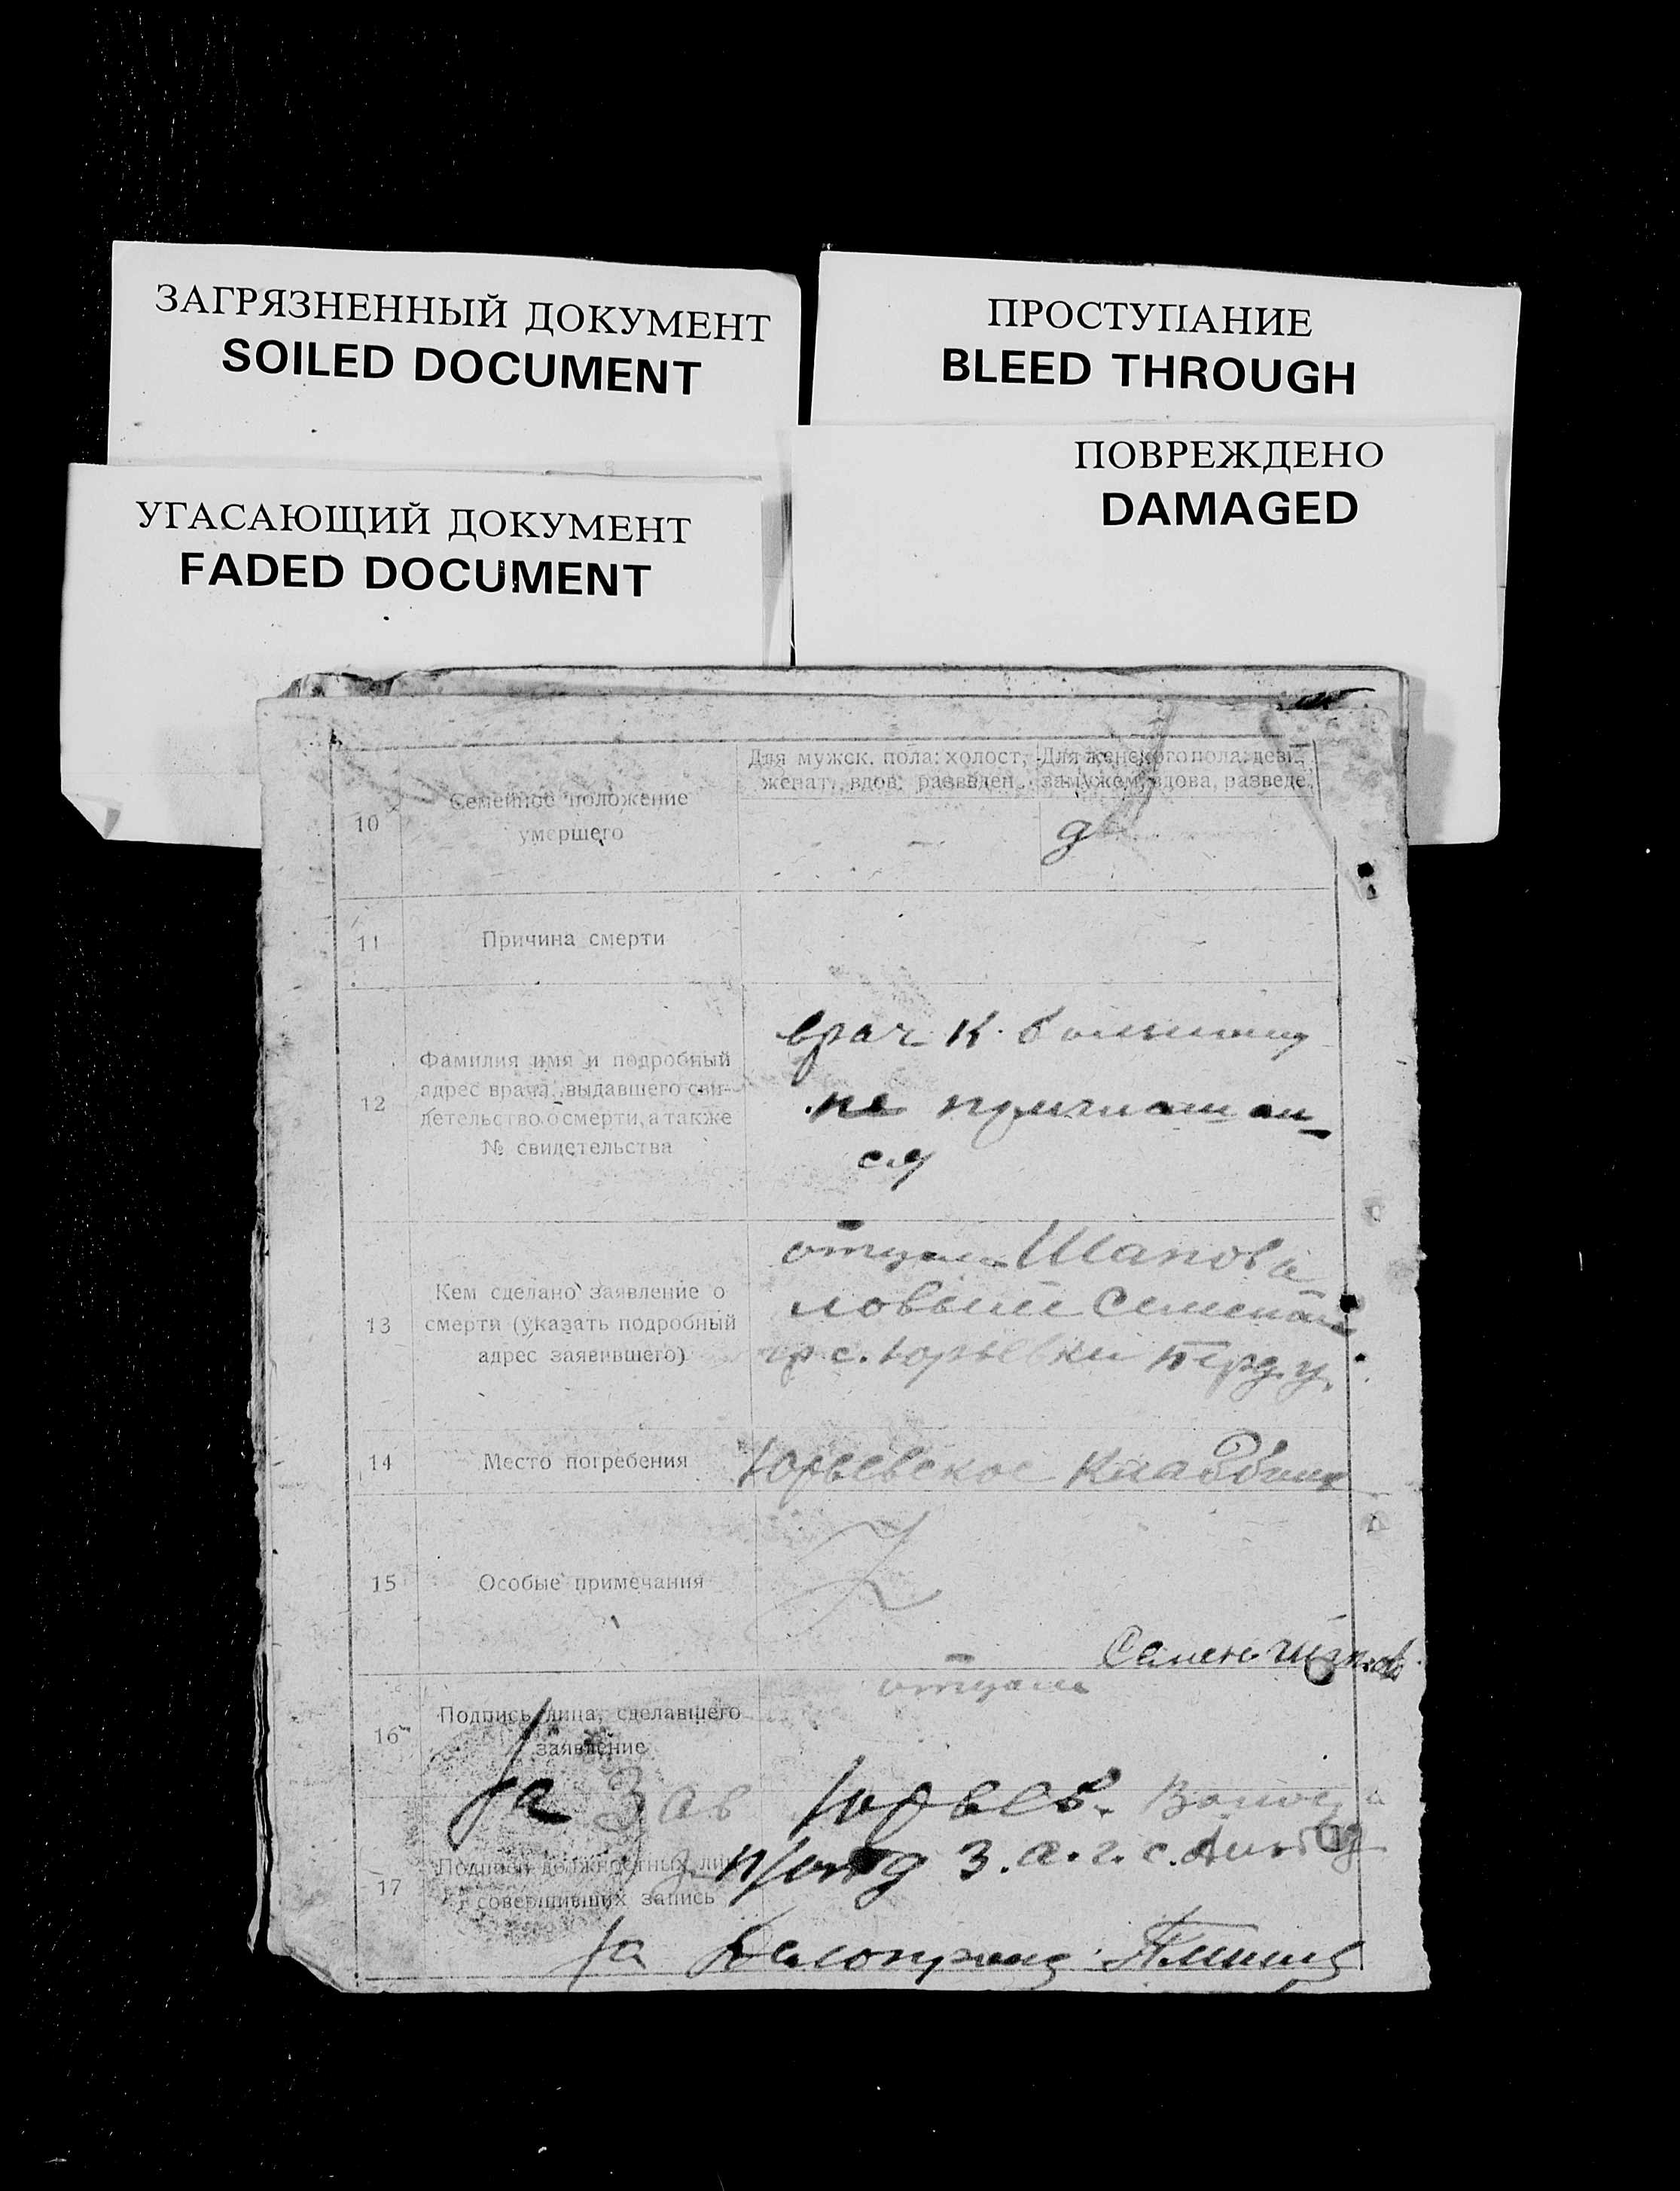 ЗАГРЯЗНЕННЫЙ ДОКУМЕНТ
SOILED DOCUMENT
ПРОСТУПАНИЕ
BLEED THROUGH
ПОВРЕЖДЕНО
DAMAGED
УГАСАЮЩИЙ ДОКУМЕНТ
FADED DOCUMENT
10
Семейное положение
умершего
Для мужск. пола: холост,
женат, вдов, разведен.
Для женского пола: деви-
замужем, вдова, разведе.
д
11
Причина смерти
12
Фамилия имя и подробный
адрес врача, выдавшего сви-
детельство о смерти, а также
№ свидетельства
врач к
не
ся
13
Кем сделано заявление о
смерти (указать подробный
адрес заявившего)
отцом Шапова
ловым Семеном
гр с. Юрьевки Берд у.
14
Место погребения
Юрьевское Кладбище
15
Особые примечания
Z
Семен
16
Подпись лица, сделавшего
заявление
отцом
За Зав Юрьев.
17
Подписи должностных лиц
совершивших запись
з. а. г. с.
За